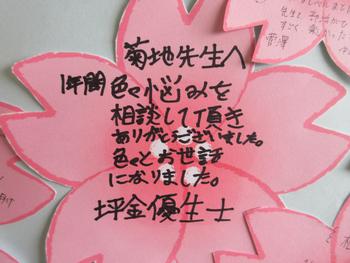 菊地先生へ
1年間色々悩みを
相談して頂き
ありがとございました。
色々とお世話
になりました。
坪金優生士
先生と
すごく